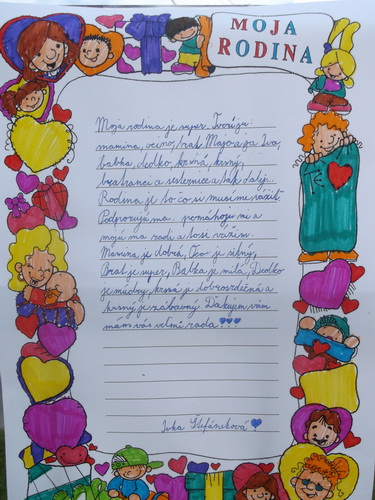 MOJA
RODINA
Moja rodina je super. Tvoria ju:
mamina, ocino, brat Majo a ja Iva,
babka, dedko, krsná, krsný,
bratranci a sesternice a tak ďalej.
Rodina je to čo si musíme vážiť.
Podporujú ma, pomáhajú mi a
majú ma radi a to si vážim.
Mamina je dobrá, Oco je silný,
Brat je super, Babka je milá, Dedko
je múdry, krsná je dobrosrdečná a
krsný je zábavný. Ďakujem vám
mám vás veľmi rada!!!
Ivka Štefániková